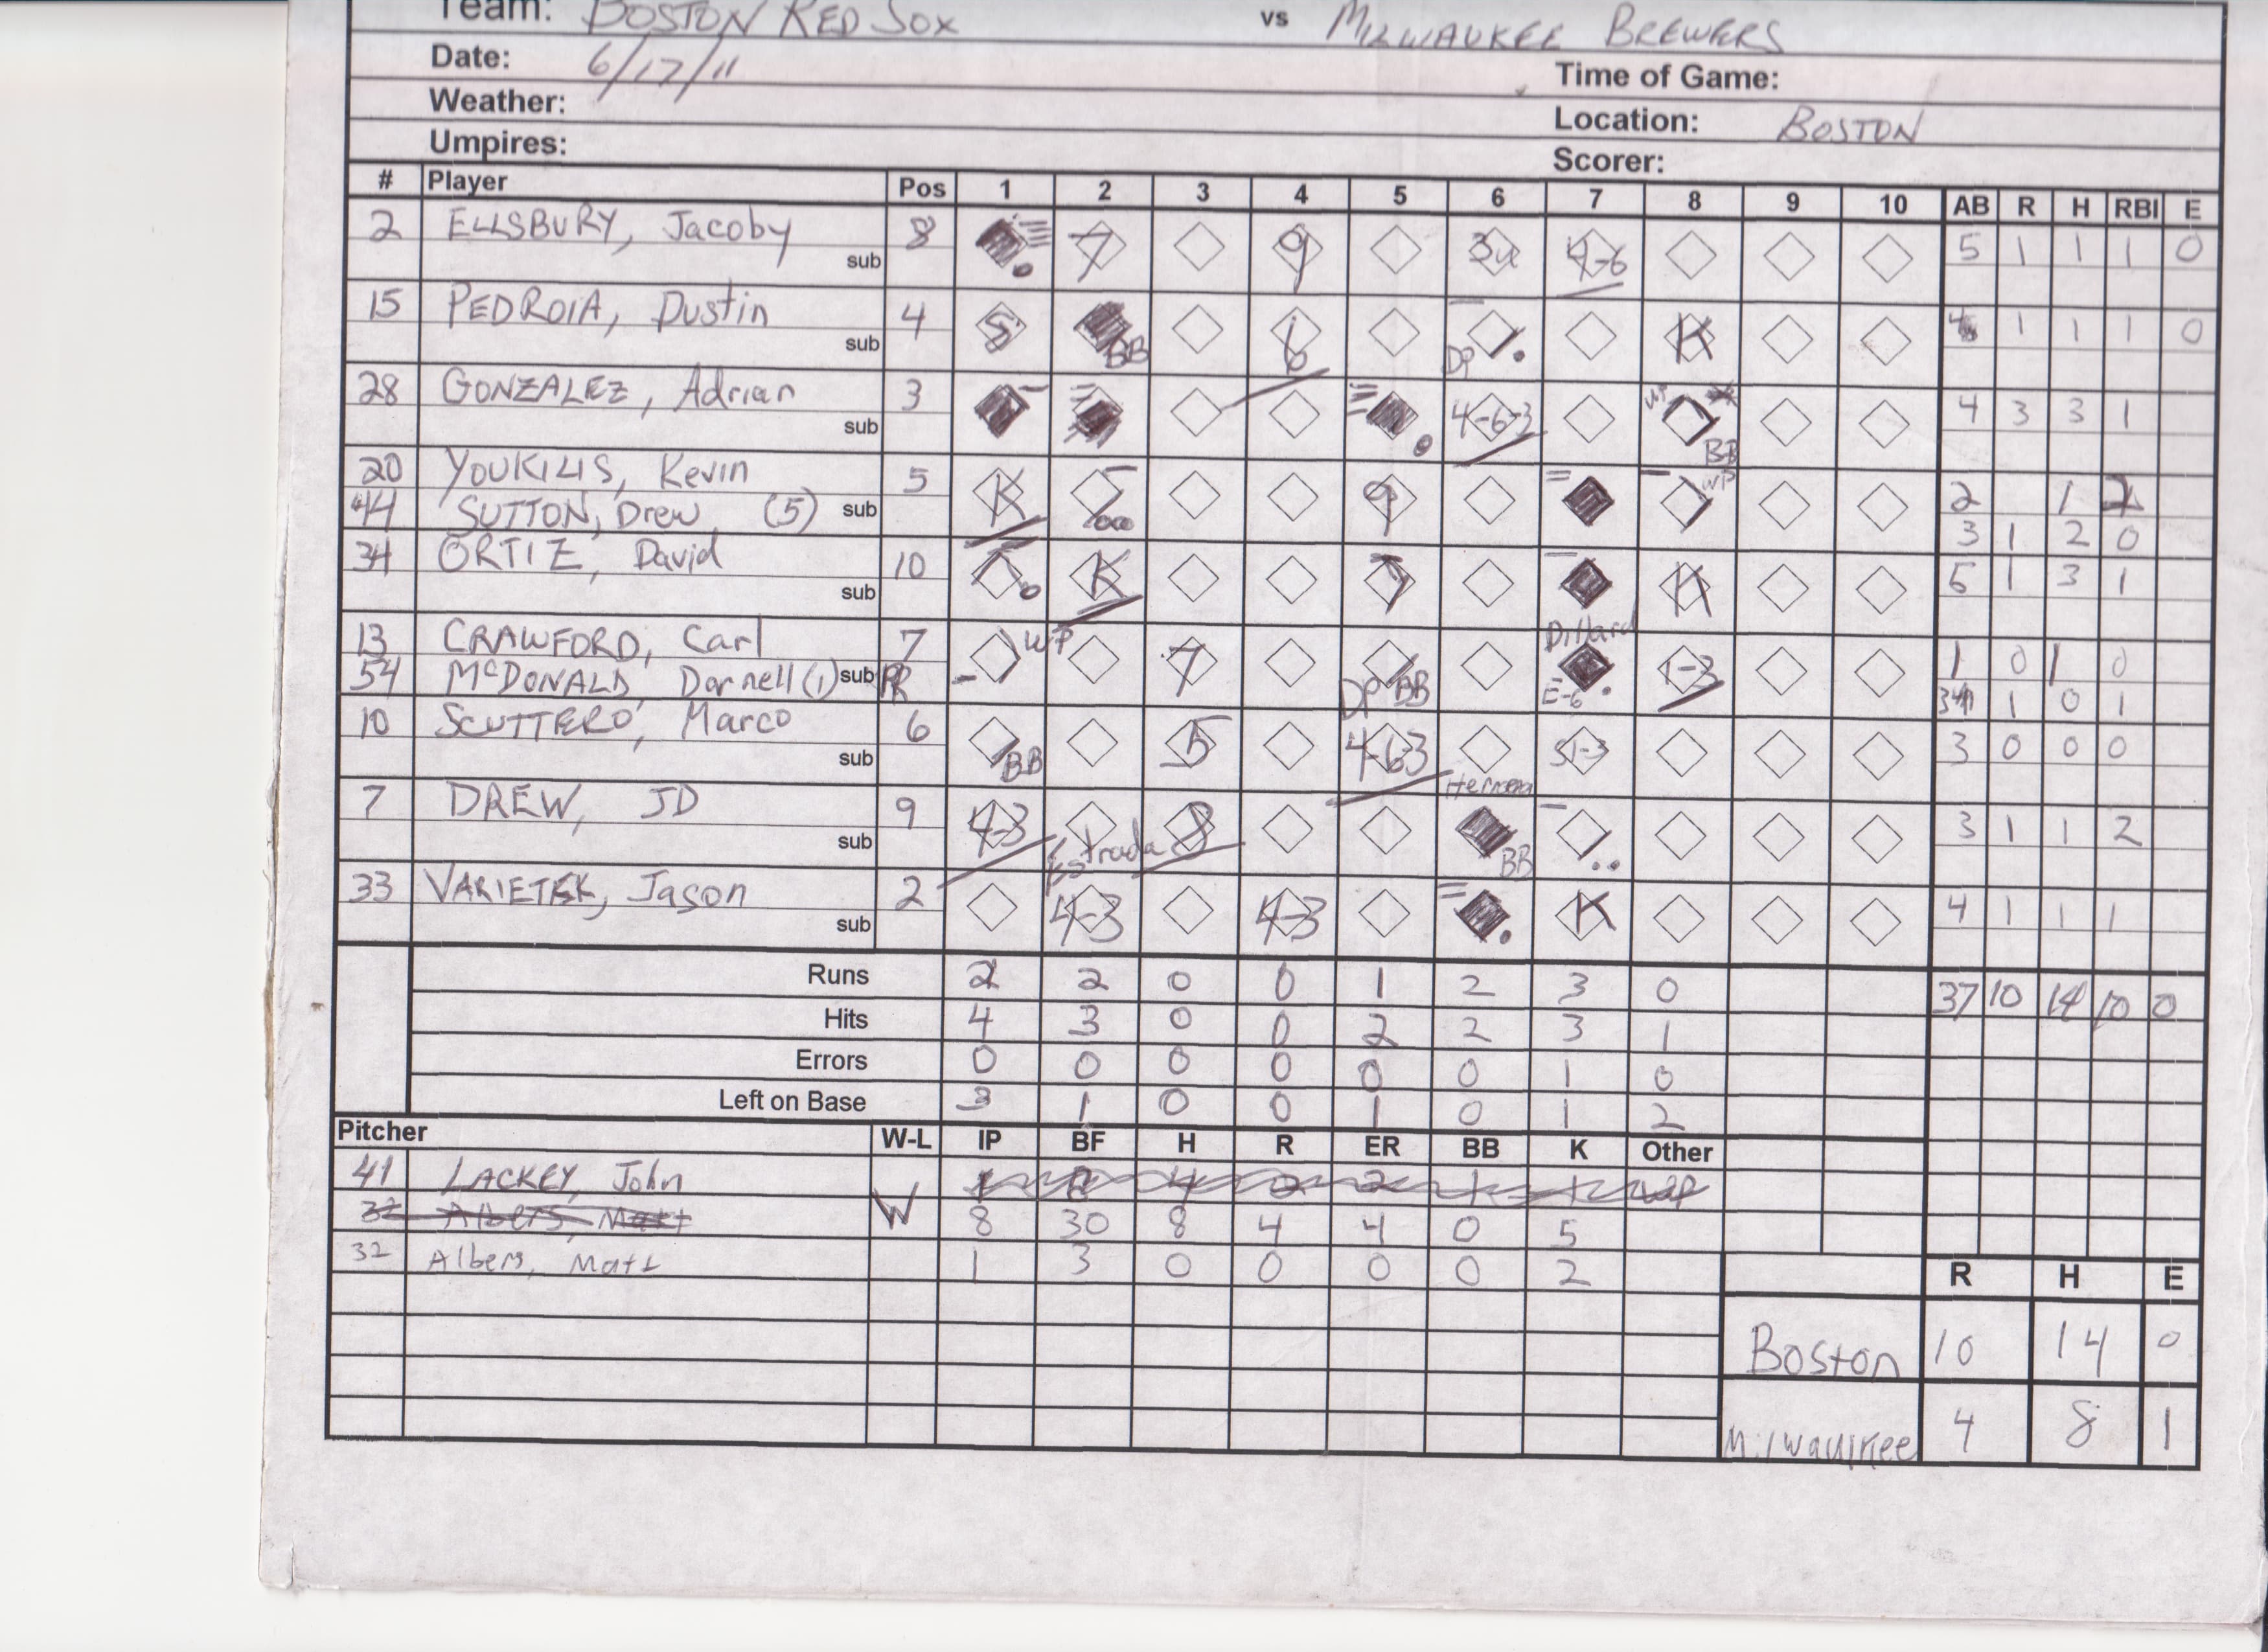 Team: BOSTON RED SOX vs MILWAUKEE BREWERS
Date: 6/17/11 Time of Game:
Weather: Location: BOSTON
Umpires: Scorer:
# Player Pos 1 2 3 4 5 6 7 8 9 10 AB R H RBI E
2 ELLSBURY, Jacoby 8 7 9 3u 4-6 5 1 1 1 0
sub
15 PEDROIA, Dustin 4 8 BB 6 DP K 4 1 1 1 0
sub
28 GONZALEZ, Adrian 3 4-6-3 WP BB 4 3 3 1
sub
20 YOUKILIS, Kevin 5 K 9 WP 2 1 2
44 SUTTON, Drew (5) sub 3 1 2 0
34 ORTIZ, David 10 K 7 K 5 1 3 1
sub
13 CRAWFORD, Carl 7 WP 7 DP BB Dillard E-6 1-3 1 0 1 0
54 McDONALD Darnell (1) sub PR 3 1 0 1
10 SCUTTERO, Marco 6 BB 5 4-6-3 51-3 3 0 0 0
sub
7 DREW, JD 9 4-3 Estrada 8 Herrera BB 3 1 1 2
sub
33 VARIETEK, Jason 2 4-3 4-3 K 4 1 1 1
sub
Runs 2 2 0 0 1 2 3 0 37 10 14 10 0
Hits 4 3 0 0 2 2 3 1
Errors 0 0 0 0 0 0 1 0
Left on Base 3 1 0 0 1 0 1 2
Pitcher W-L IP BF H R ER BB K Other
41 LACKEY, John
32 Albers, Matt W 8 30 8 4 4 0 5
32 Albers, Matt 1 3 0 0 0 0 2
R H E
Boston 10 14 0
Milwaukee 4 8 1